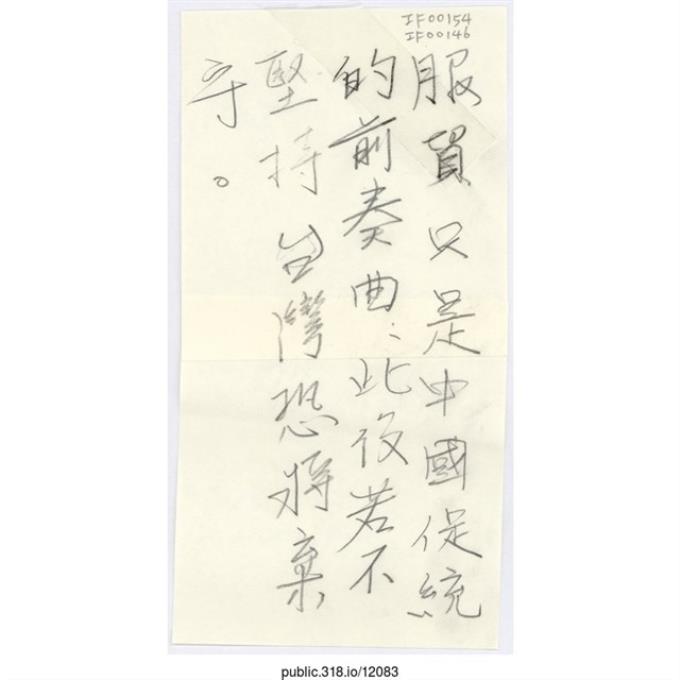 IF00154
IF00146
服貿只是中國促統
的前奏曲;此後若不
堅持台灣恐將棄
守。
public.318.io/12083